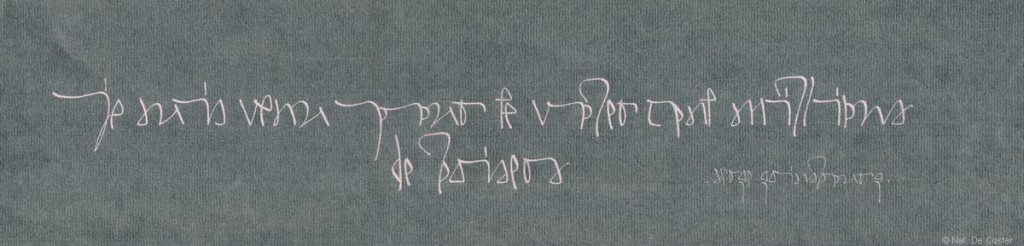 je suis venu pour te voler cent millions
de baisers
.serge gainsbourg.
© Nat. De Coster